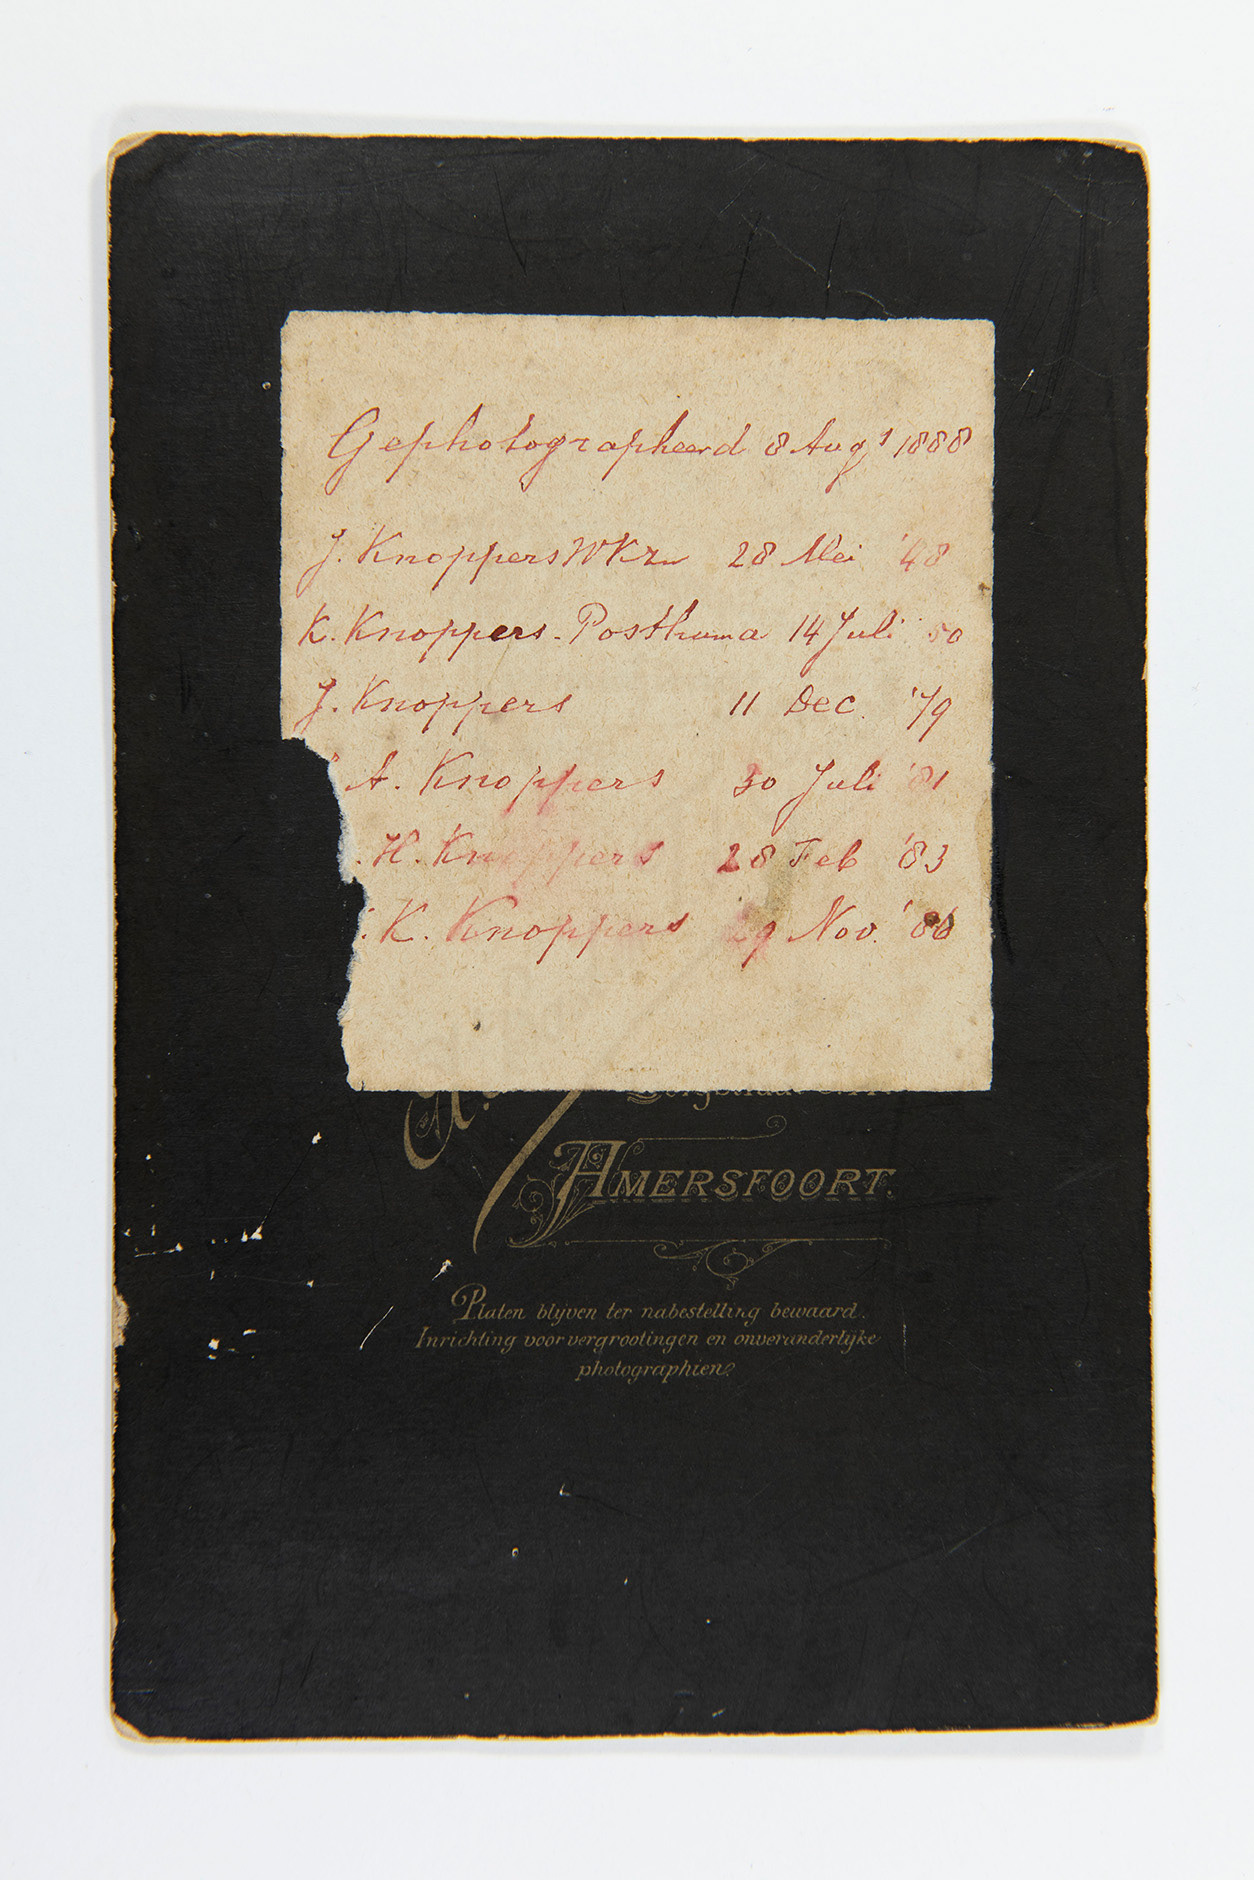 Gephotographeerd 8 Augs 1888
J. Knoppers WKzn 28 Mei '48
K. Knoppers-Posthuma 14 Juli '50
J. Knoppers 11 Dec. '79
A. Knoppers 30 Juli '81
H. Knoppers 28 Feb '83
K. Knoppers 29 Nov. '86
AMERSFOORT.
Platen blijven ter nabestelling bewaard.
Inrichting voor vergrootingen en onveranderlijke
photographien.